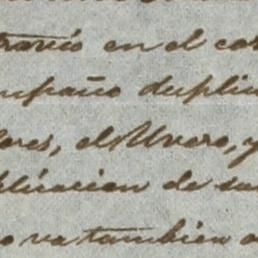 travió en el cor
mpaño duplic
lores, el Uvero, y
plicacion de su
o va tambien a